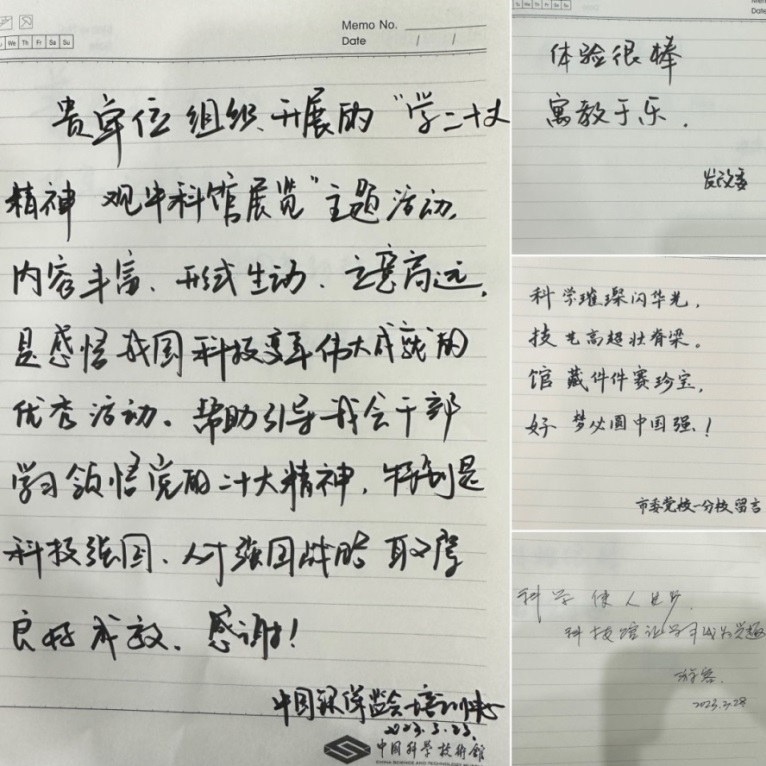 Memo No.
Date / /
We Th Fr Sa Su
贵单位组织、开展的“学二十大
精神 观中科馆展览”主题活动,
内容丰富、形式生动、立意高远,
是感悟我国科技变革伟大成就的
优秀活动。帮助引导我会干部
学习领悟党的二十大精神,特别是
科技强国、人才强国战略取得
良好成效、感谢!
中国银保监会培训中心
2023.3.23.
中国科学技术馆
体验很棒
寓教于乐.
发改委
科学璀璨闪华光,
技艺高超壮脊梁。
馆藏件件赛珍宝,
好梦必圆中国强!
市委党校一分校留言
科学使人进步
科技馆让学习成为兴趣
游客.
2023.3.28